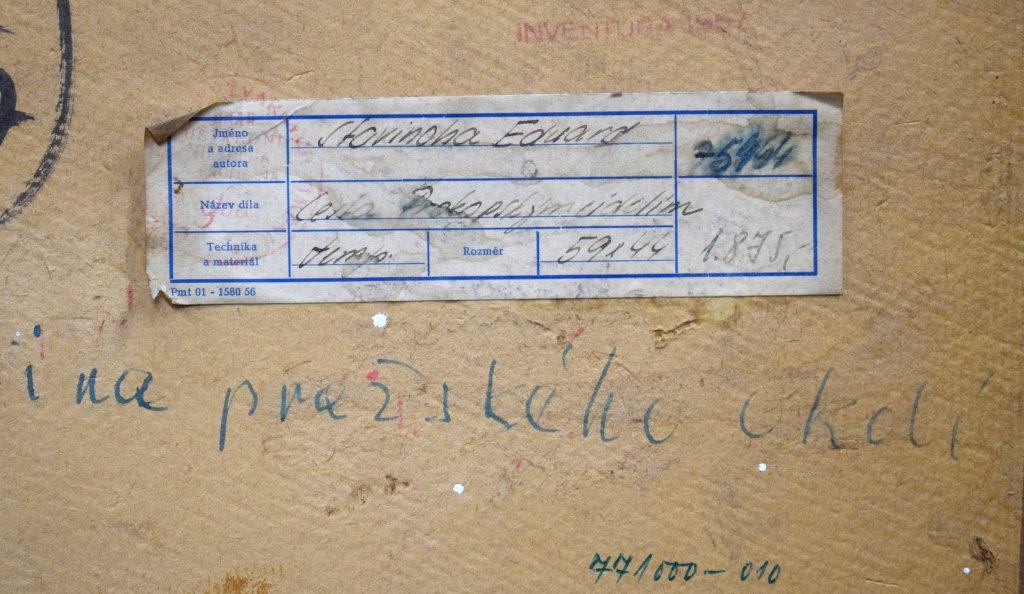 INVENTURA 1987
Jméno
a adresa
autora
Eduard
Název díla
Cesta Prokopským údolím
Technika
a materiál
temp.
Rozměr
59x44
1.875,-
Pmt 01 - 1580 56
ina pražského okolí
771000-010